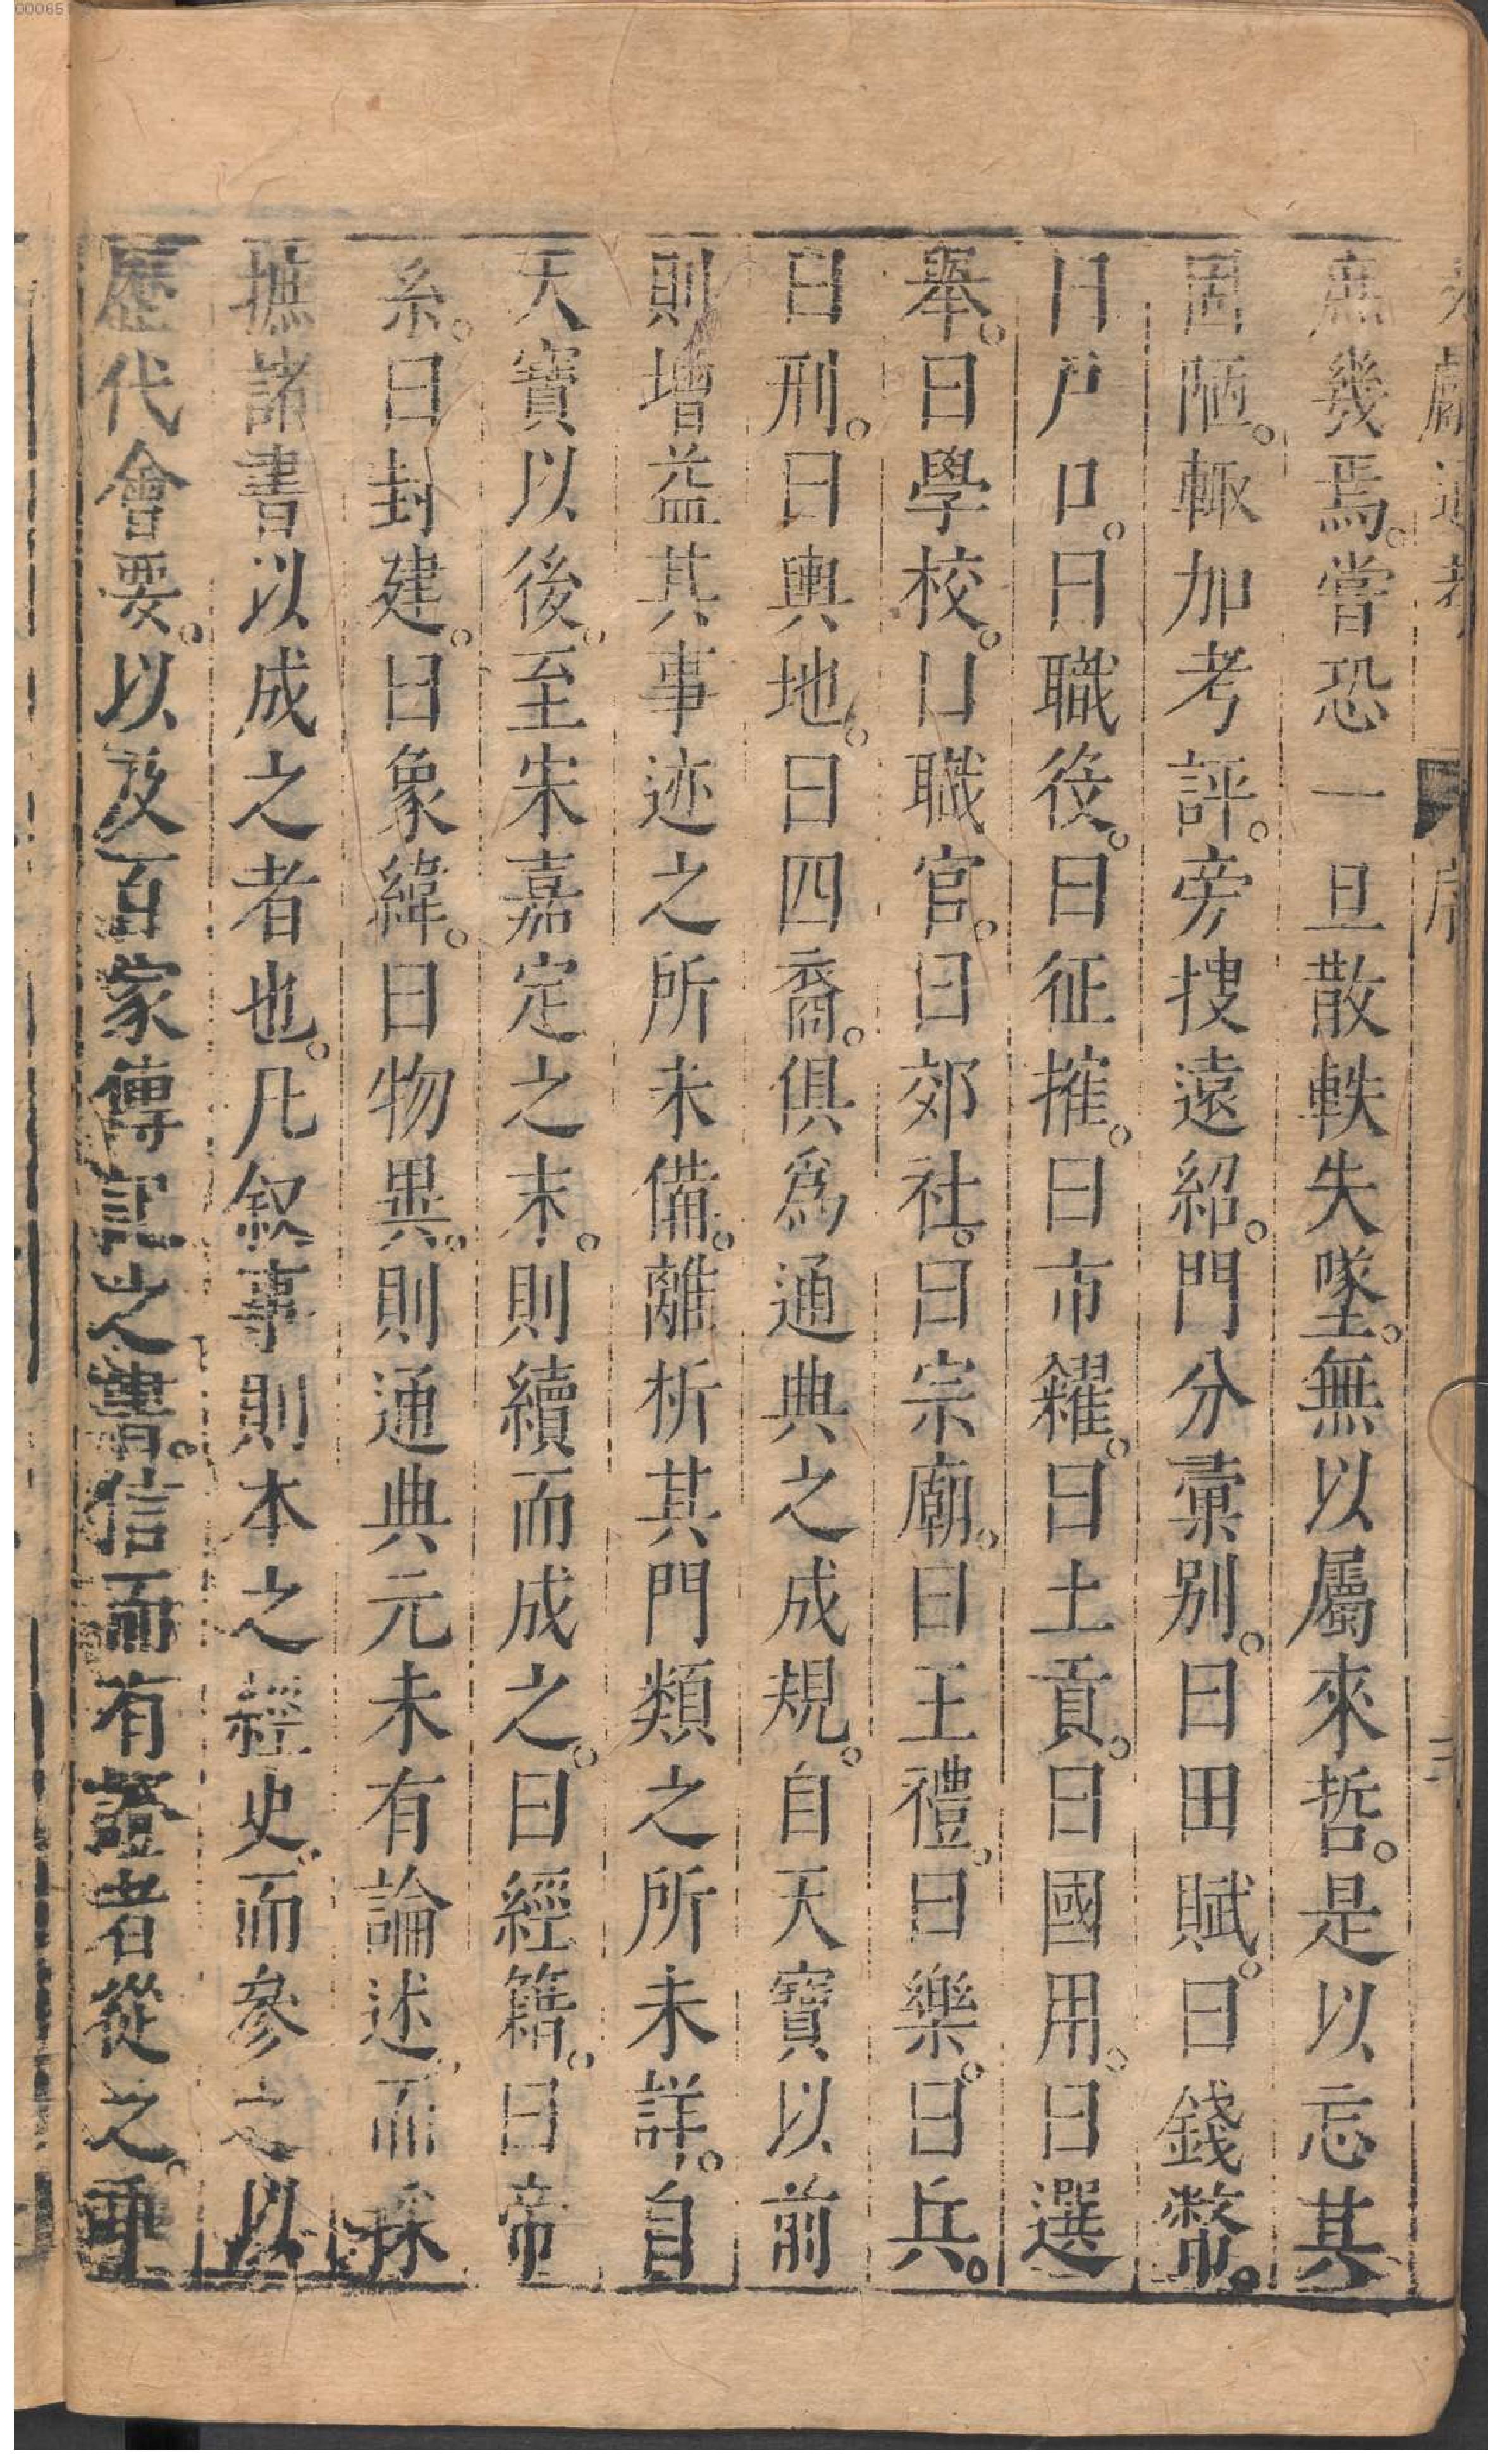 00065
庶幾焉。嘗恐一旦散軼失墜。無以屬來哲。是以忘其
固陋。輙加考評。旁搜遠紹。門分彚別。曰田賦。曰錢幣。
曰戸口。曰職役。曰征搉。曰市糴。曰土貢。曰國用。曰選
舉。曰學校。曰職官。曰郊社。曰宗廟。曰王禮。曰樂。曰兵。
曰刑。曰輿地。曰四裔。俱爲通典之成規。自天寶以前
則增益其事迹之所未備。離析其門類之所未詳。自
天寶以後。至宋嘉定之末。則續而成之。曰經籍。曰帝
系。曰封建。曰象緯。曰物異。則通典元未有論述。而採
摭諸書以成之者也。凡叙事則本之經史。而參之以
歷代會要。以及百家傳記之書。信而有證者從之。乖